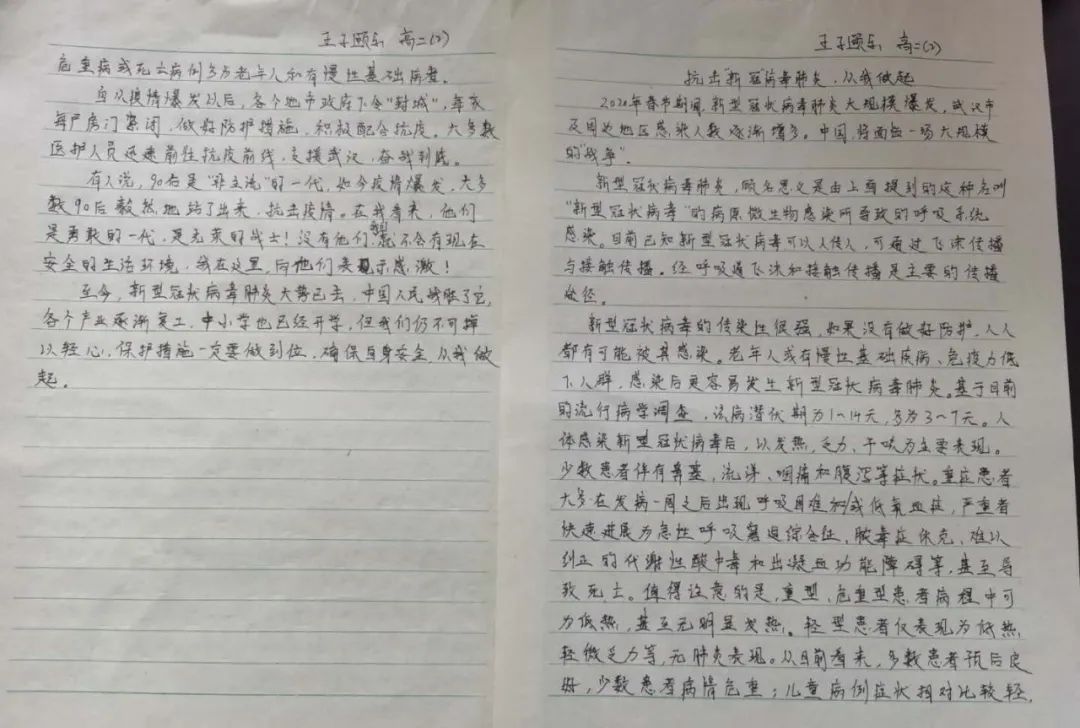 王子颐乐 高二(2)
抗击"新冠"病毒肺炎,从我做起
2020年春节期间,新型冠状病毒肺炎大规模爆发,武汉市
及周边地区感染人数逐渐增多。中国,将面临一场大规模
的"战争"。
新型冠状病毒肺炎,顾名思义是由上面提到的这种名叫
"新型冠状病毒"的病原微生物感染所导致的呼吸系统
感染。目前已知新型冠状病毒可以人传人,可通过飞沫传播
与接触传播。经呼吸道飞沫和接触传播是主要的传播
途径。
新型冠状病毒的传染性很强,如果没有做好防护,人人
都有可能被其感染。老年人或有慢性基础疾病、免疫力低
下人群,感染后更容易发生新型冠状病毒肺炎。基于目前
的流行病学调查,该病潜伏期为1~14天,多为3~7天。人
体感染新型冠状病毒后,以发热、乏力、干咳为主要表现。
少数患者伴有鼻塞,流涕、咽痛和腹泻等症状。重症患者
大多在发病一周之后出现呼吸困难和/或低氧血症,严重者
快速进展为急性呼吸窘迫综合征,脓毒症休克、难以
纠正的代谢性酸中毒和出凝血功能障碍等,甚至导
致死亡。值得注意的是,重型、危重型患者病程中可
为低热,甚至无明显发热。轻型患者仅表现为低热,
轻微乏力等,无肺炎表现。从目前看来,多数患者预后良
好,少数患者病情危重;儿童病例症状相对比较轻,
王子颐乐 高二(2)
危重病或死亡病例多为老年人和有慢性基础病者。
自从疫情爆发以后,各个地市政府下令"封城",每家
每户房门紧闭,做好防护措施,积极配合抗疫。大多数
医护人员迅速前往抗疫前线,支援武汉,奋战到底。
有人说,90后是"非主流"的一代,如今疫情爆发,大多
数90后毅然地站了出来,抗击疫情。在我看来,他们
是勇敢的一代,是光荣的战士!没有他们,就不会有现在
安全的生活环境,我在这里,向他们表示感激!
至今,新型冠状病毒肺炎大势已去,中国人民战胜了它,
各个产业逐渐复工,中小学也已经开学,但我们仍不可掉
以轻心,保护措施一定要做到位,确保自身安全,从我做
起。